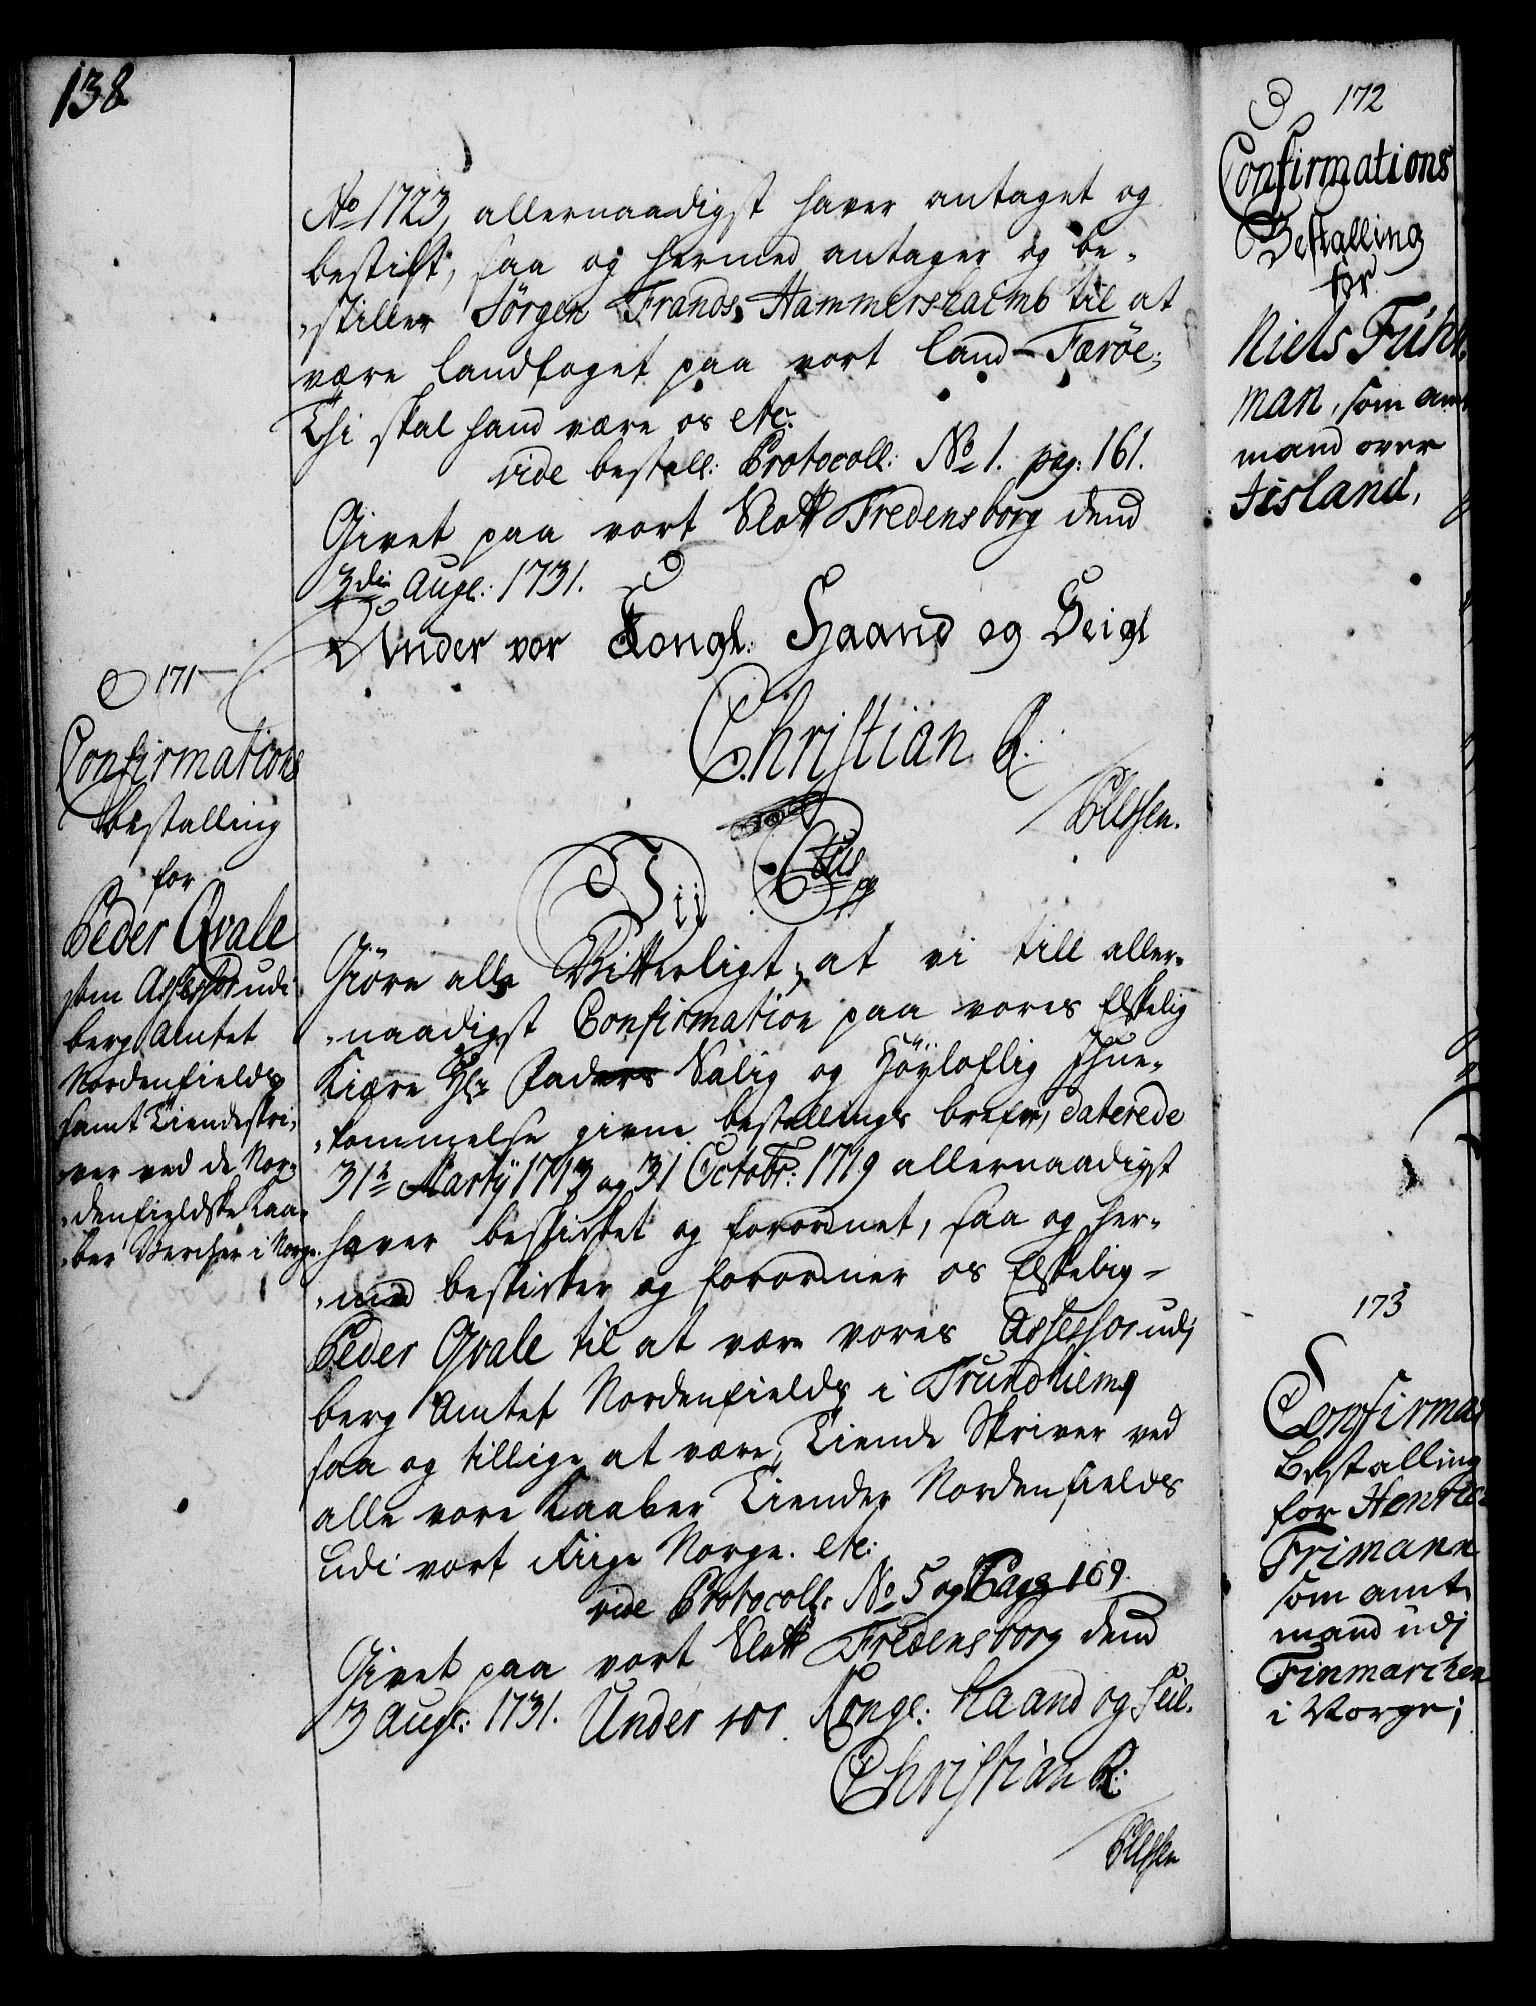 138
No 1723, allernaadigst haver antaget og
bestilt, saa og hermed antager og be-
-stiller Jörgen Frands Hammershaimb til at
være landfoget paa vort land Færöe;
Thi skal hand være os etc:
vide bestall: Protocoll: No 1. pag: 161.
Givet paa vort Slott Fredensborg dend
3die Augs: 1731.
Under vor Kongl: Haand og Seigl
Christian R:
171
Confirmations
bestalling
for
Peder Qvale
som Assessor udi
berg Amtet
Nordenfields
samt Tiendeskri-
ver ved de Nor-
-denfieldske Kaa-
-ber Vercher i Norge.
Vii C6tus
Giöre alle Vitterligt, at vi till aller-
-naadigst Confirmation paa vores Elskelig
Kiære Hr Faders Salig og Höyloflig Ihue-
-kommelse givne bestallings brefve, daterede
31te Martij 1713 og 31 Octobr: 1719 allernaadigst
haver beskicket og forordnet, saa og her-
-med beskicker og forordner os Elskelig
Peder Qvale til at være vores Assessor udj
berg Amtet Nordenfields i Trundhiems
saa og tillige at være Tiende Skriver ved
alle vore Kaaber Tiender Nordenfields
udi vort Riige Norge. etc:
vide Protocoll: No 5 og Page 169.
Givet paa vort Slott Fredensborg dend
3 Augs: 1731. Under vor Kongl: Haand og Seil.
Christian R:
172
Confirmations
Bestalling
for
Niels Fuhr
man, som amt
mand over
Iisland,
173
Confirmas
Bestalling
for Henrich
Frimann
som amt
mand udj
Finmarchen
i Norge;